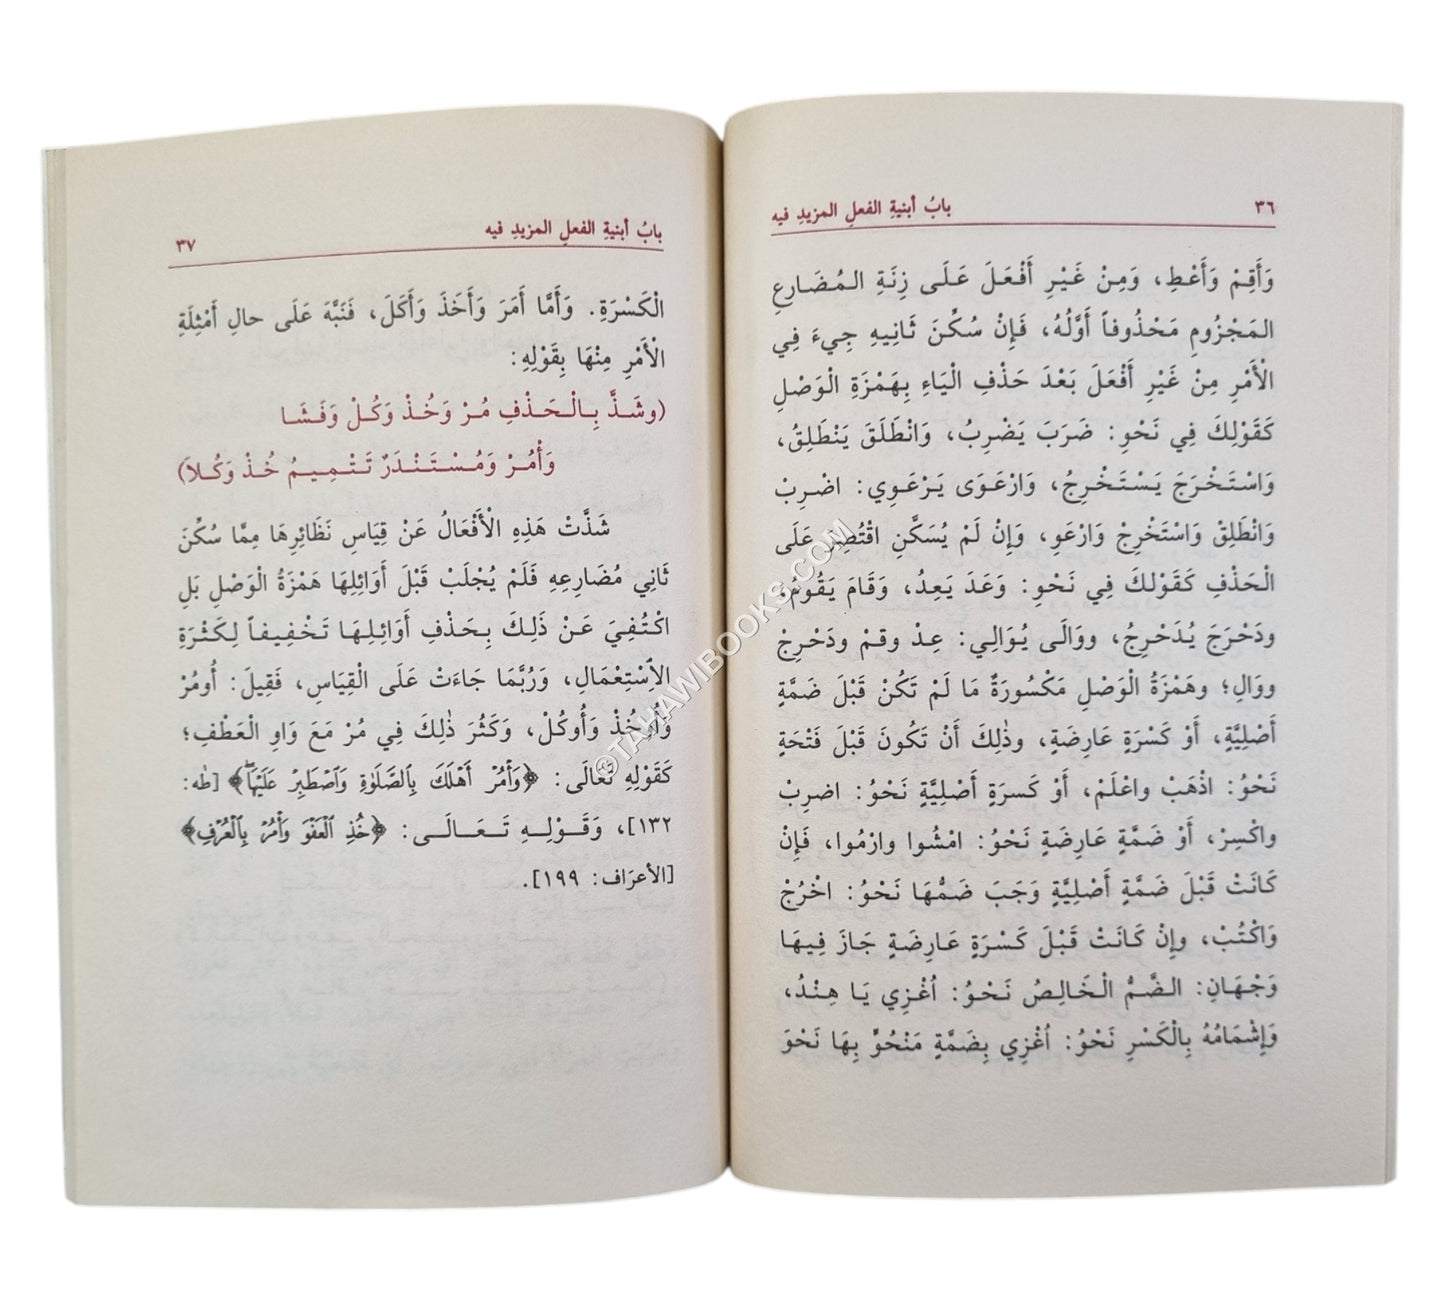 ٣٦ بابُ أبنيةِ الفعلِ المزيدِ فيه
وَأَقِمْ وَأَعْطِ، وَمِنْ غَيْرِ أَفْعَلَ عَلَى زِنَةِ الـمُضَارِعِ
المَجْزُومِ مَحْذُوفاً أَوَّلُهُ، فَإِنْ سُكِّنَ ثَانِيهِ جِيءَ فِي
الْأَمْرِ مِنْ غَيْرِ أَفْعَلَ بَعْدَ حَذْفِ الْيَاءِ بِهَمْزَةِ الْوَصْلِ
كَقَوْلِكَ فِي نَحْوِ: ضَرَبَ يَضْرِبُ، وَانْطَلَقَ يَنْطَلِقُ،
وَاسْتَخْرَجَ يَسْتَخْرِجُ، وَارْعَوَى يَرْعَوِي: اضْرِبْ
وَانْطَلِقْ وَاسْتَخْرِجْ وَارْعَوِ، وَإِنْ لَمْ يُسَكَّنِ اقْتُصِرَ عَلَى
الْحَذْفِ كَقَوْلِكَ فِي نَحْوِ: وَعَدَ يَعِدُ، وَقَامَ يَقُومُ،
ودَحْرَجَ يُدَحْرِجُ، ووَالَى يُوَالِي: عِدْ وقمْ ودَحْرِجْ
ووَالِ؛ وهَمْزَةُ الْوَصْلِ مَكْسُورَةٌ مَا لَمْ تَكُنْ قَبْلَ ضَمَّةٍ
أَصْلِيَّةٍ، أَوْ كَسْرَةٍ عَارِضَةٍ، وذٰلِكَ أَنْ تَكُونَ قَبْلَ فَتْحَةٍ
نَحْوُ: اذْهَبْ واعْلَمْ، أَوْ كَسرَةٍ أَصْلِيَّةٍ نَحْوُ: اضرِبْ
واكْسِرْ، أَوْ ضَمَّةٍ عَارِضَةٍ نَحْوُ: امْشُوا وارْمُوا، فَإِنْ
كَانَتْ قَبْلَ ضَمَّةٍ أَصْلِيَّةٍ وَجَبَ ضَمُّهَا نَحْوُ: اخْرُجْ
وَاكْتُبْ، وإِنْ كَانَتْ قَبْلَ كَسْرَةٍ عَارِضَةٍ جَازَ فِيهَا
وَجْهَانِ: الـضَّمُّ الْخَالِصُ نَحْوُ: اُغْزِي يَا هِنْدُ،
وَإِشْمَامُهُ بِالْكَسْرِ نَحْوُ: اُغْزِي بِضَمَّةٍ مَنْحُوٍّ بِهَا نَحْوَ
بابُ أبنيةِ الفعلِ المزيدِ فيه ٣٧
الْكَسْرَةِ. وَأَمَّا أَمَرَ وَأَخَذَ وَأَكَلَ، فَنَبَّهَ عَلَى حالِ أَمْثِلَةِ
الْأَمْرِ مِنْهَا بِقَوْلِهِ:
(وشَذَّ بِالْحَذْفِ مُرْ وَخُذْ وَكُلْ وَفَشَا
وَأْمُرْ وَمُسْتَنْدَرٌ تَتْمِيمُ خُذْ وَكُلاَ)
شَذَّتْ هَذِهِ الْأَفْعَالُ عَنْ قِيَاسِ نَظَائِرِهَا مِمَّا سُكِّنَ
ثَانِي مُضَارِعِهِ فَلَمْ يُجْلَبْ قَبْلَ أَوَائِلِهَا هَمْزَةُ الْوَصْلِ بَلِ
اكْتُفِيَ عَنْ ذَلِكَ بِحَذْفِ أَوَائِلِهَا تَخْفِيفاً لِكَثْرَةِ
الاِسْتِعْمَالِ، وَرُبَّمَا جَاءَتْ عَلَى الْقِيَاسِ، فَقِيلَ: أُومُرْ
وَأُوخُذْ وَأُوكُلْ، وَكَثُرَ ذٰلِكَ فِي مُرْ مَعَ وَاوِ الْعَطْفِ؛
كَقَوْلِهِ تَعَالَى: ﴿وَأۡمُرۡ أَهۡلَكَ بِٱلصَّلَوٰةِ وَٱصۡطَبِرۡ عَلَيۡهَاۖ﴾ [طه:
١٣٢]، وَقَـوْلِـهِ تَـعَـالَـى: ﴿خُذِ ٱلۡعَفۡوَ وَأۡمُرۡ بِٱلۡعُرۡفِ﴾
[الأعرَاف: ١٩٩].
©TAHAWIBOOKS.COM